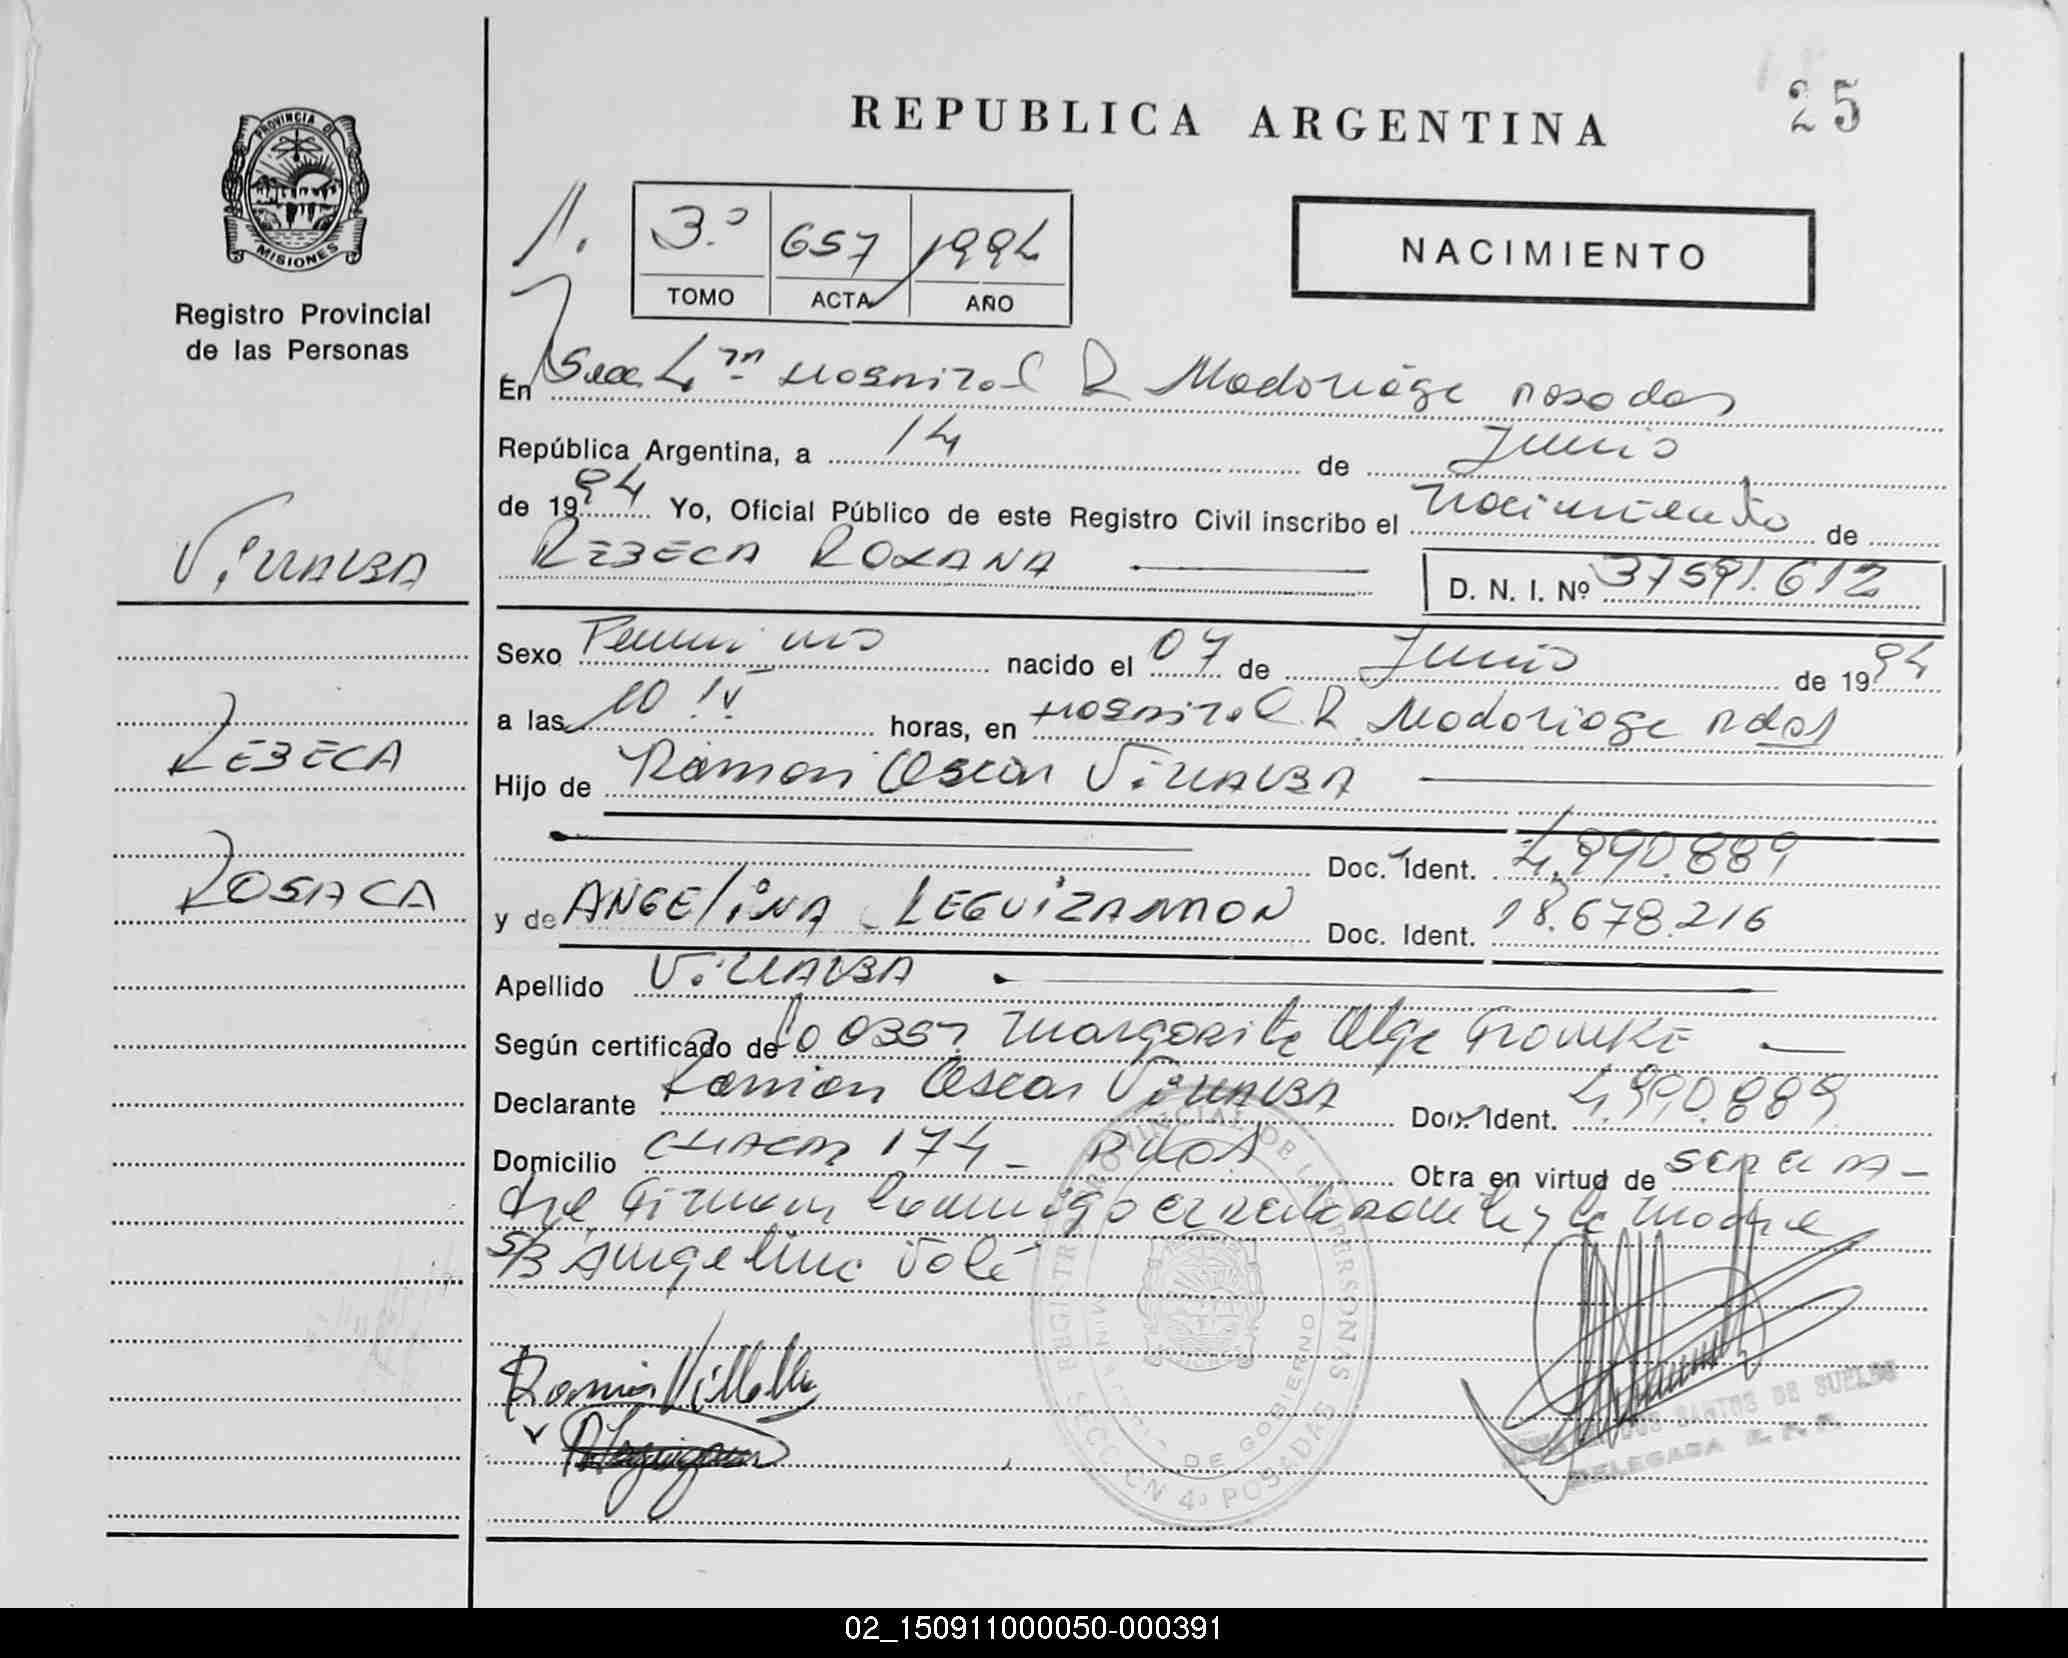 REPUBLICA ARGENTINA
25
PROVINCIA DE
MISIONES
Registro Provincial
de las Personas
3.º 657 1994
TOMO ACTA AÑO
NACIMIENTO
En Secc 4ta Hospital R Madariaga Posadas
República Argentina, a 14 de Junio
de 1994 Yo, Oficial Público de este Registro Civil inscribo el Nacimiento de
REBECA ROXANA
D. N. I. Nº 37591.612
VILLALBA
REBECA
Sexo Femenino nacido el 07 de Junio de 1994
a las 10 horas, en Hospital R. Madariaga Pdas
Hijo de Ramon Oscar VILLALBA
Doc. Ident. 4.990.889
y de ANGELINA LEGUIZAMON Doc. Ident. 18.678.216
Apellido VILLALBA
Según certificado de Margarita Olga
Declarante Ramon Oscar VILLALBA Doc. Ident. 4.990.889
Domicilio CHACO 174 - Otra en virtud de
Firman conmigo el declarante y la madre
S/B Angelina Vale
REGISTRO PROVINCIAL DE LAS PERSONAS
MINISTERIO DE GOBIERNO
SECCION 4º POSADAS
SANTOS DE SUELDO
DELEGADA R. P. P.
02_150911000050-000391